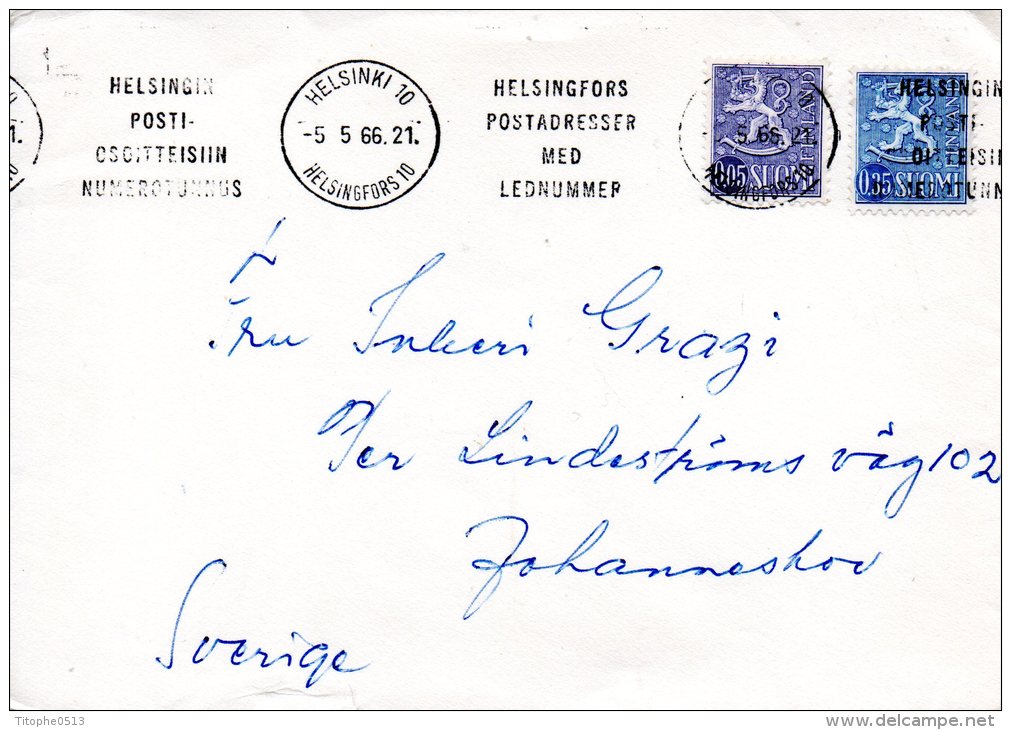 HELSINGIN
POSTI-
OSOITTEISIIN
NUMEROTUNNUS
HELSINKI 10
-5 5 66.21.
HELSINGFORS 10
HELSINGFORS
POSTADRESSER
MED
LEDNUMMER
5 66.21
HELSINGFORS 10
FINLAND
0,05 SUOMI
HELSINGIN
POSTI-
FINLAND
0,35 SUOMI
Fru Inkeri Grazi
Per Lindeströms väg 102
Johanneshov
Sverige
Titophe0513
delcampe.net